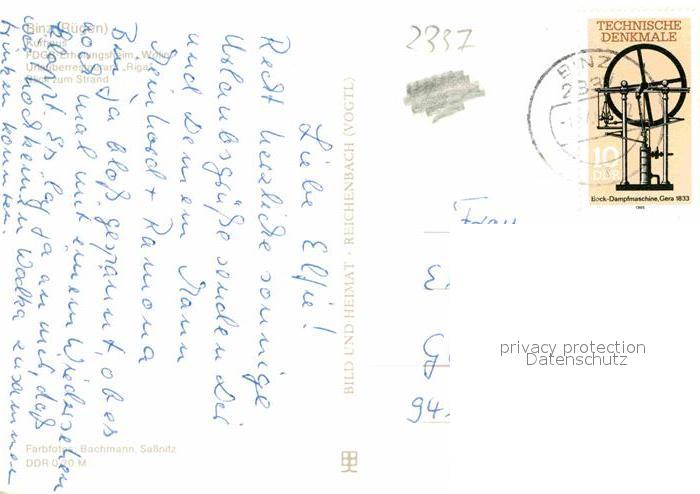 Binz (Rügen)
Kurhaus
FDGB-Erholungsheim "Wolin"
Urlauberrestaurant "Riga"
Blick zum Strand
Liebe Elfie!
Recht herzliche sonnige
Urlaubsgrüße senden Dir
und Deinem Mann
Reinhard + Ramona
Bin ja bloß gespannt, ob es
noch mal mit einem Wiedersehen
klappt. Es lag ja an mir, daß
wir noch keinen Wodka zusammen
trinken konnten.
Farbfotos: Bachmann, Saßnitz
DDR 0,20 M
BILD UND HEIMAT · REICHENBACH (VOGTL)
2337
BINZ
TECHNISCHE
DENKMALE
10
DDR
Bock-Dampfmaschine, Gera 1833
1985
Frau
E
G
94
privacy protection
Datenschutz